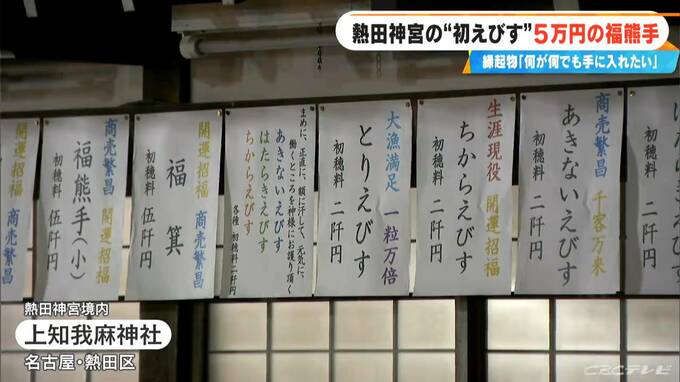 熱田神宮の“初えびす”5万円の福熊手
縁起物「何が何でも手に入れたい」
あきないえびす
商売繁昌 千客万来
初穂料 二阡円
生涯現役 開運招福
ちからえびす
初穂料 二阡円
大漁満足 一粒万倍
とりえびす
初穂料 二阡円
まめに、正直に、額に汗して、元気に、
働くところを神様にお護り頂く
あきないえびす
はたらきえびす
ちからえびす
各種 初穂料二阡円
開運招福 商売繁昌
福箕
初穂料 伍阡円
商売繁昌 開運招福
福熊手(小)
初穂料 伍阡円
開運招福 商売繁昌
熱田神宮境内
上知我麻神社
名古屋・熱田区
CBCテレビ